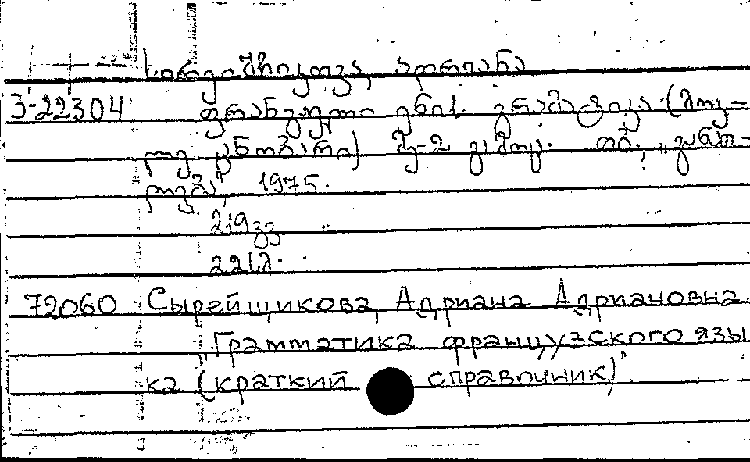 სირეიშჩიკოვა, ადრიანა
3-22304 ფრანგული ენის გრამატიკა (მოკ-
ლე ცნობარი) მე-2 გამოც. თბ., „განათ-
ლება", 1975.
219 გვ
72060 Сырейщикова, Адриана Адриановна
Грамматика французского язы
ка (краткий справочник)".